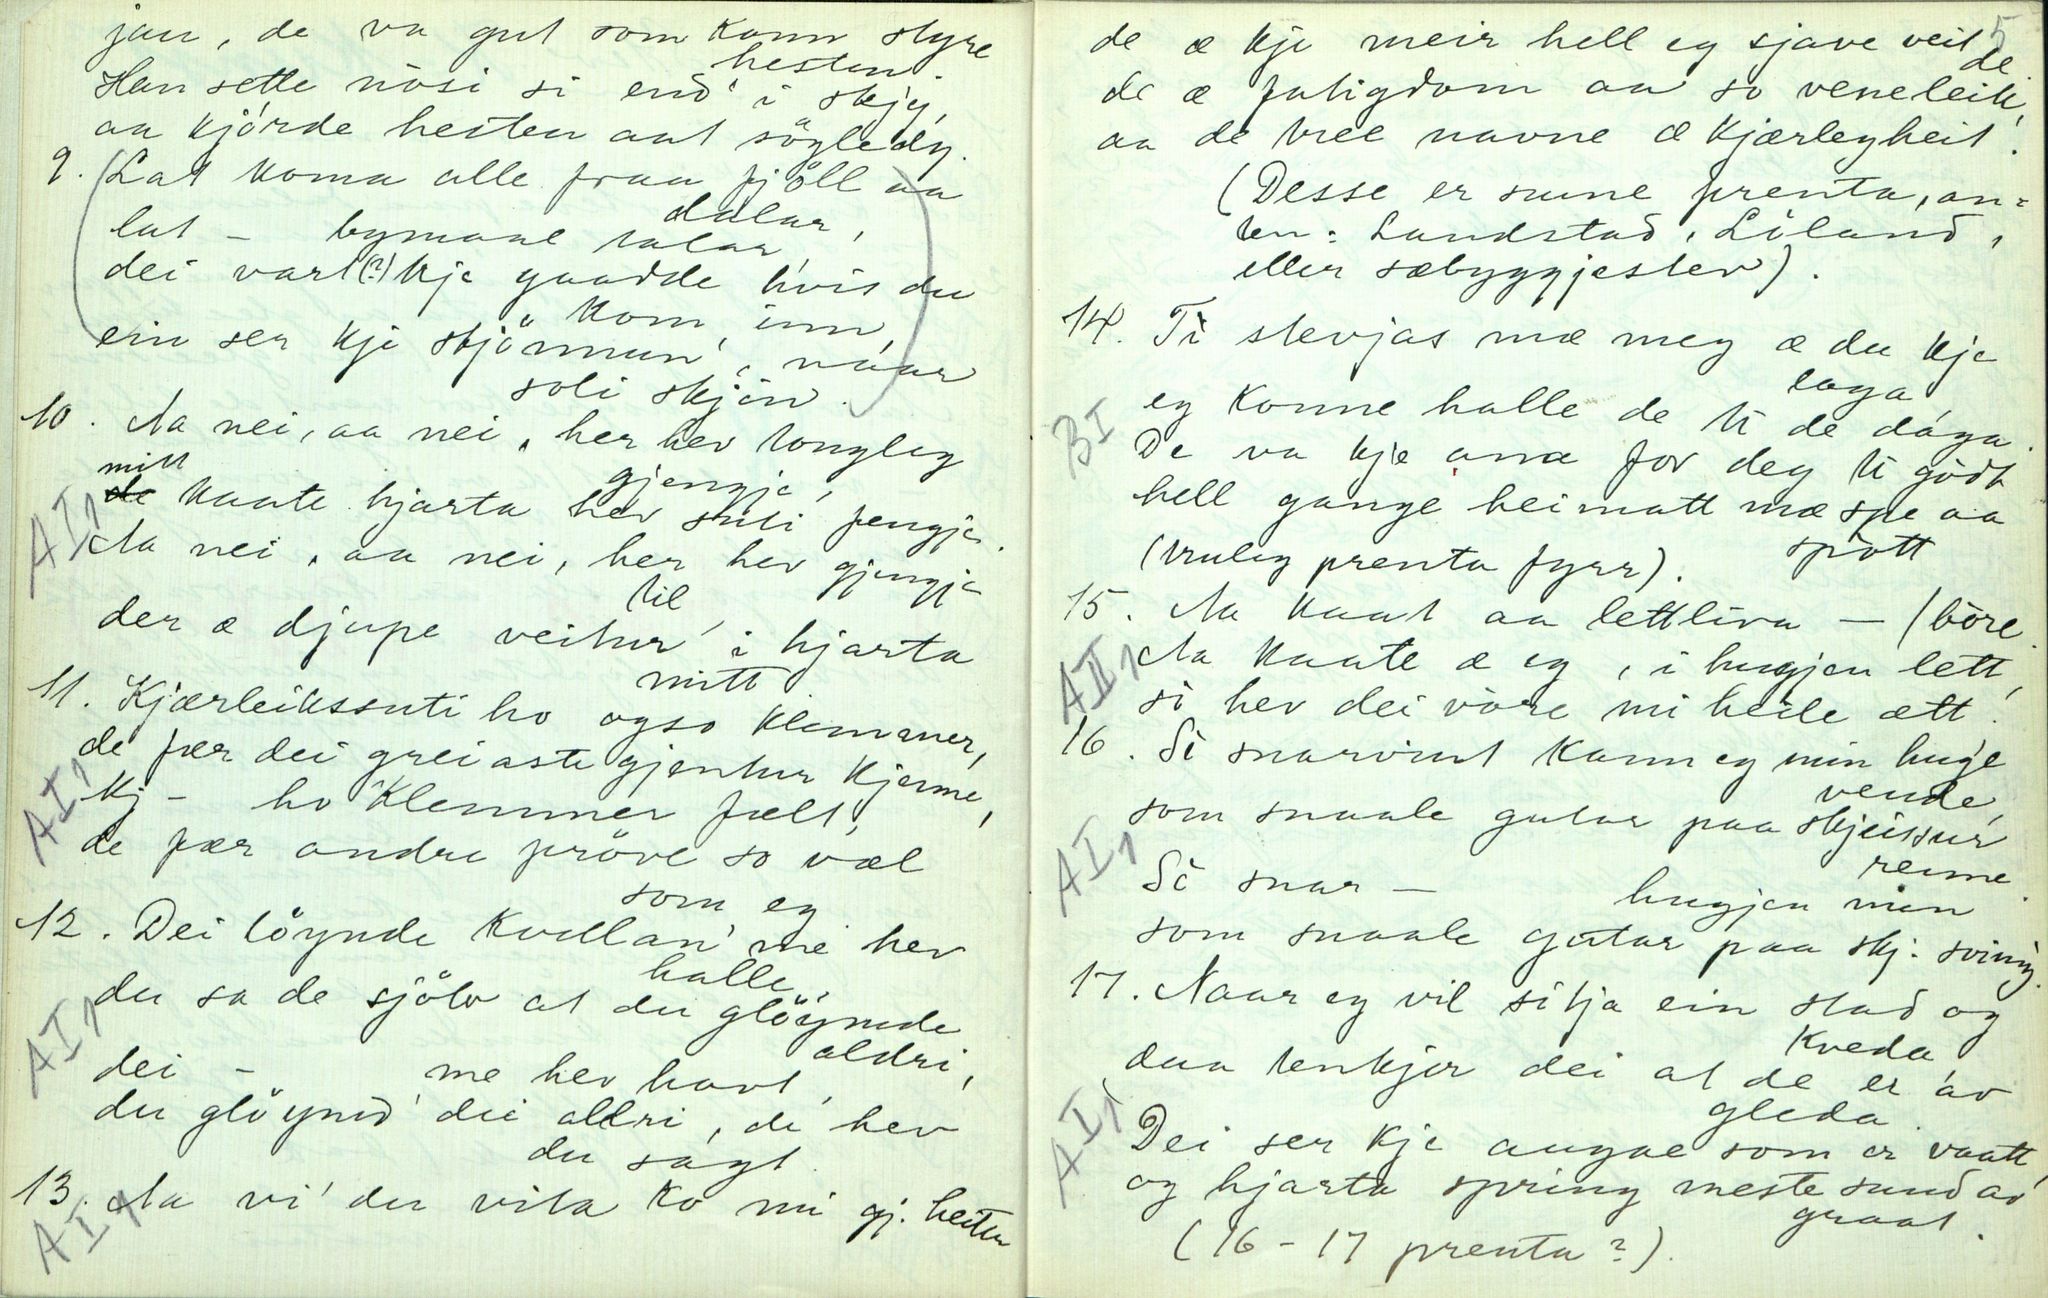 jau, de va gut som kann styre
hesten.
Han sette nòsi si endå i skjy,
aa kjörde hesten aat söglè dy.
9. (Lat koma alle fraa fjöll aa
dalar,
lat - bymaal talar,
dei vart(?) kje gaadde hvis du
kom inn,
ein ser kje stjönnun', náar
soli skjin.)
10. Aa nei, aa nei, her hev tongleg
gjengje,
mitt
de kaate hjarta hev suti fengje.
AI1
Aa nei, aa nei, her hev gjengje
til,
der æ djupe veitur i hjarta
mitt.
11. Kjærleikssuti ho ogso klemmer,
de fær dei greiaste gjentur kjenne,
AI1
Kj - ho klemmer fælt,
de fær andre pröve so væl
som eg
12. Dei löynde kvellan' me hev
halle,
du sa de sjölv at du glöymde
aldri,
AI1
dei - me hev havt,
du glöymd' dei aldri, de hev
du sagt.
13. Aa vi' du vita ko mi gj. heiter
AI1
5
de æ kje meir hell eg sjave veit
de.
de æ fatigdom aa so veneleik,
aa de tree navne æ kjærlegheit.
(Desse er sume prenta, an=
ten: Landstad, Löland,
eller sæbyggjestev).
14. Ti stevjas mæ meg æ du kje
laga
BI
eg konne halle de ti de dága.
De va kje anna for deg ti gödt
hell gange heimatt mæ spe aa
spòtt
(truleg prenta fyrr).
15. Aa kaat aa lettliva - (bòre.
AII1
Aa kaate æ eg, i hugjen lett,
si hev dei vòre mi heile ætt.
16. Si snarvint kann eg min huge
vende,
som snaale gutar paa skjeisur
renne.
AI1
Si snar - hugjen min
som snaale gutar paa skj: sviving.
17. Naar eg vil sitja ein stad og
kveda
daa tenkjer dei at de er av
gleda.
AI1
Dei ser kje augae som er vaatt,
og hjarta spring meste sund av
graat.
(16-17 prenta?).